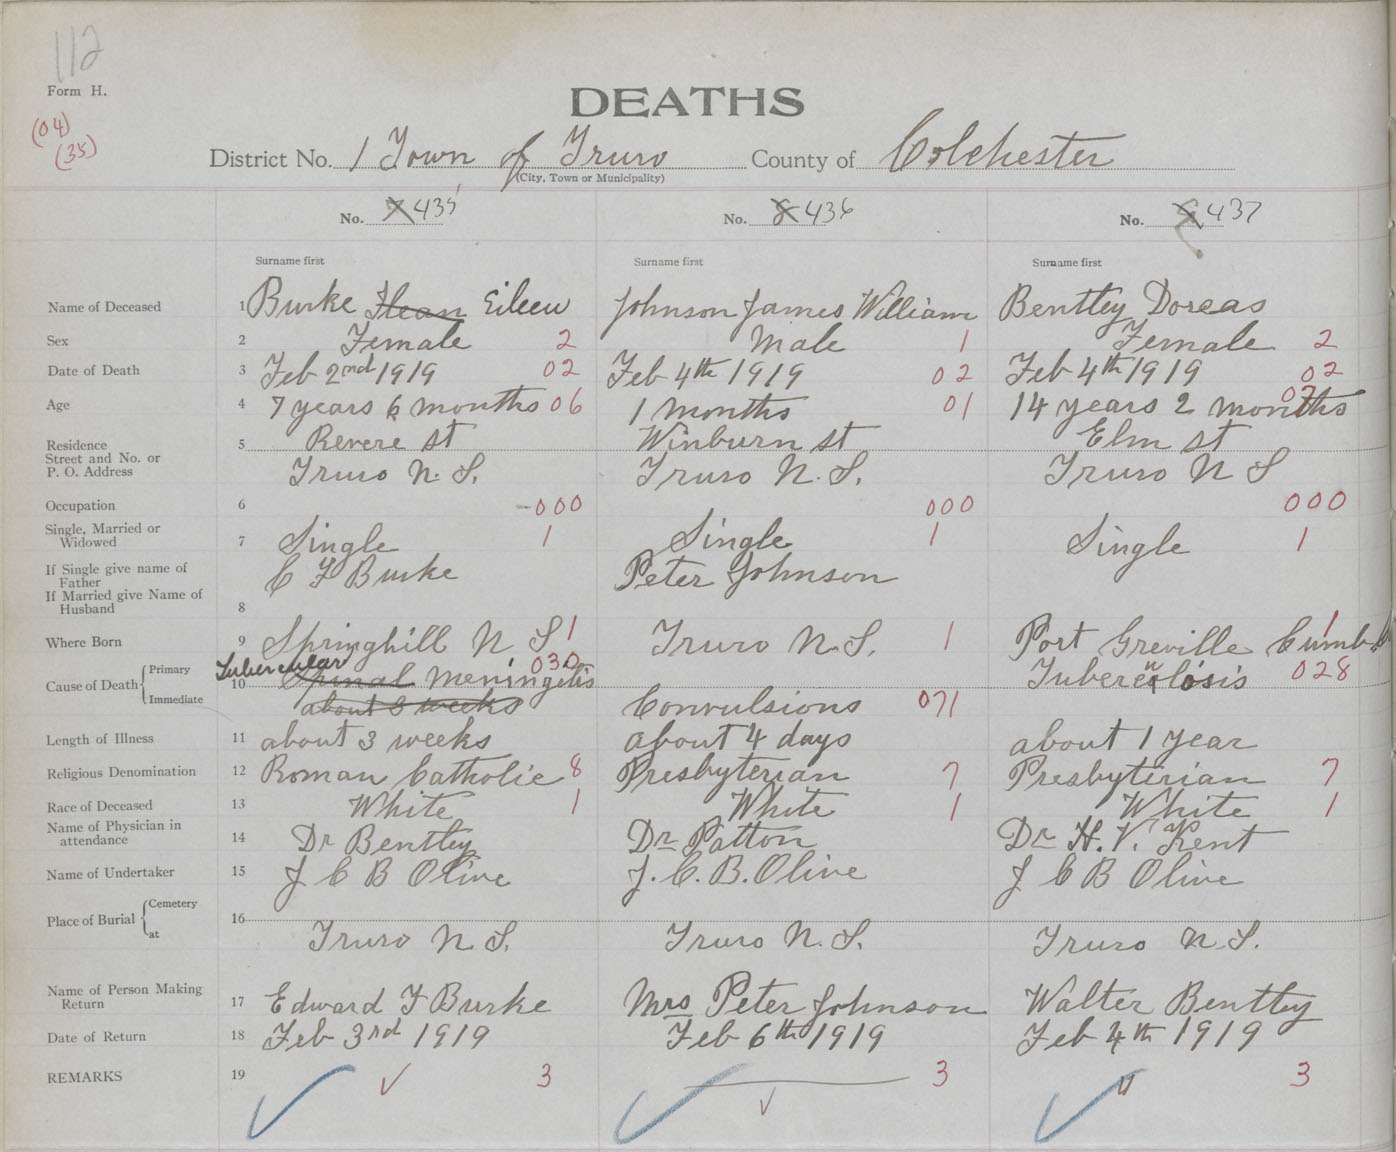 112
Form H.
DEATHS
(04)
(35)
District No. 1 Town of Truro County of Colchester
(City, Town or Municipality)
No. 7 435 No. 8 436 No. 9 437
Surname first Surname first Surname first
Name of Deceased 1 Burke Ilean Eileen Johnson James William Bentley Dorcas
Sex 2 Female 2 Male 1 Female 2
Date of Death 3 Feb 2nd 1919 02 Feb 4th 1919 02 Feb 4th 1919 02
Age 4 7 years 6 months 06 1 months 01 14 years 2 months 07
Residence 5 Revere St Winburn St Elm St
Street and No. or
P. O. Address Truro N. S. Truro N. S. Truro N S
Occupation 6 000 000 000
Single, Married or
Widowed 7 Single 1 Single 1 Single 1
If Single give name of
Father C F Burke Peter Johnson
If Married give Name of
Husband 8
Where Born 9 Springhill N S 1 Truro N. S. 1 Port Greville Cumb 1
Cause of Death Primary 10 Tubercular Spinal Meningitis 030 Tuberculosis 028
Immediate about 3 weeks Convulsions 071
Length of Illness 11 about 3 weeks about 4 days about 1 year
Religious Denomination 12 Roman Catholic 8 Presbyterian 7 Presbyterian 7
Race of Deceased 13 White 1 White 1 White 1
Name of Physician in
attendance 14 Dr Bentley Dr Patton Dr H. V. Kent
Name of Undertaker 15 J C B Olive J. C. B. Olive J C B Olive
Place of Burial Cemetery 16
at Truro N. S. Truro N. S. Truro N. S.
Name of Person Making
Return 17 Edward F Burke Mrs Peter Johnson Walter Bentley
Date of Return 18 Feb 3rd 1919 Feb 6th 1919 Feb 4th 1919
REMARKS 19 3 3 3